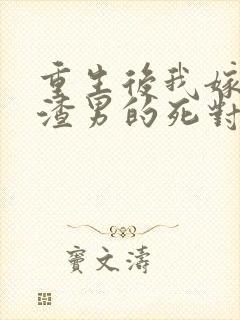 重生後我嫁
渣男的死對
竇文濤